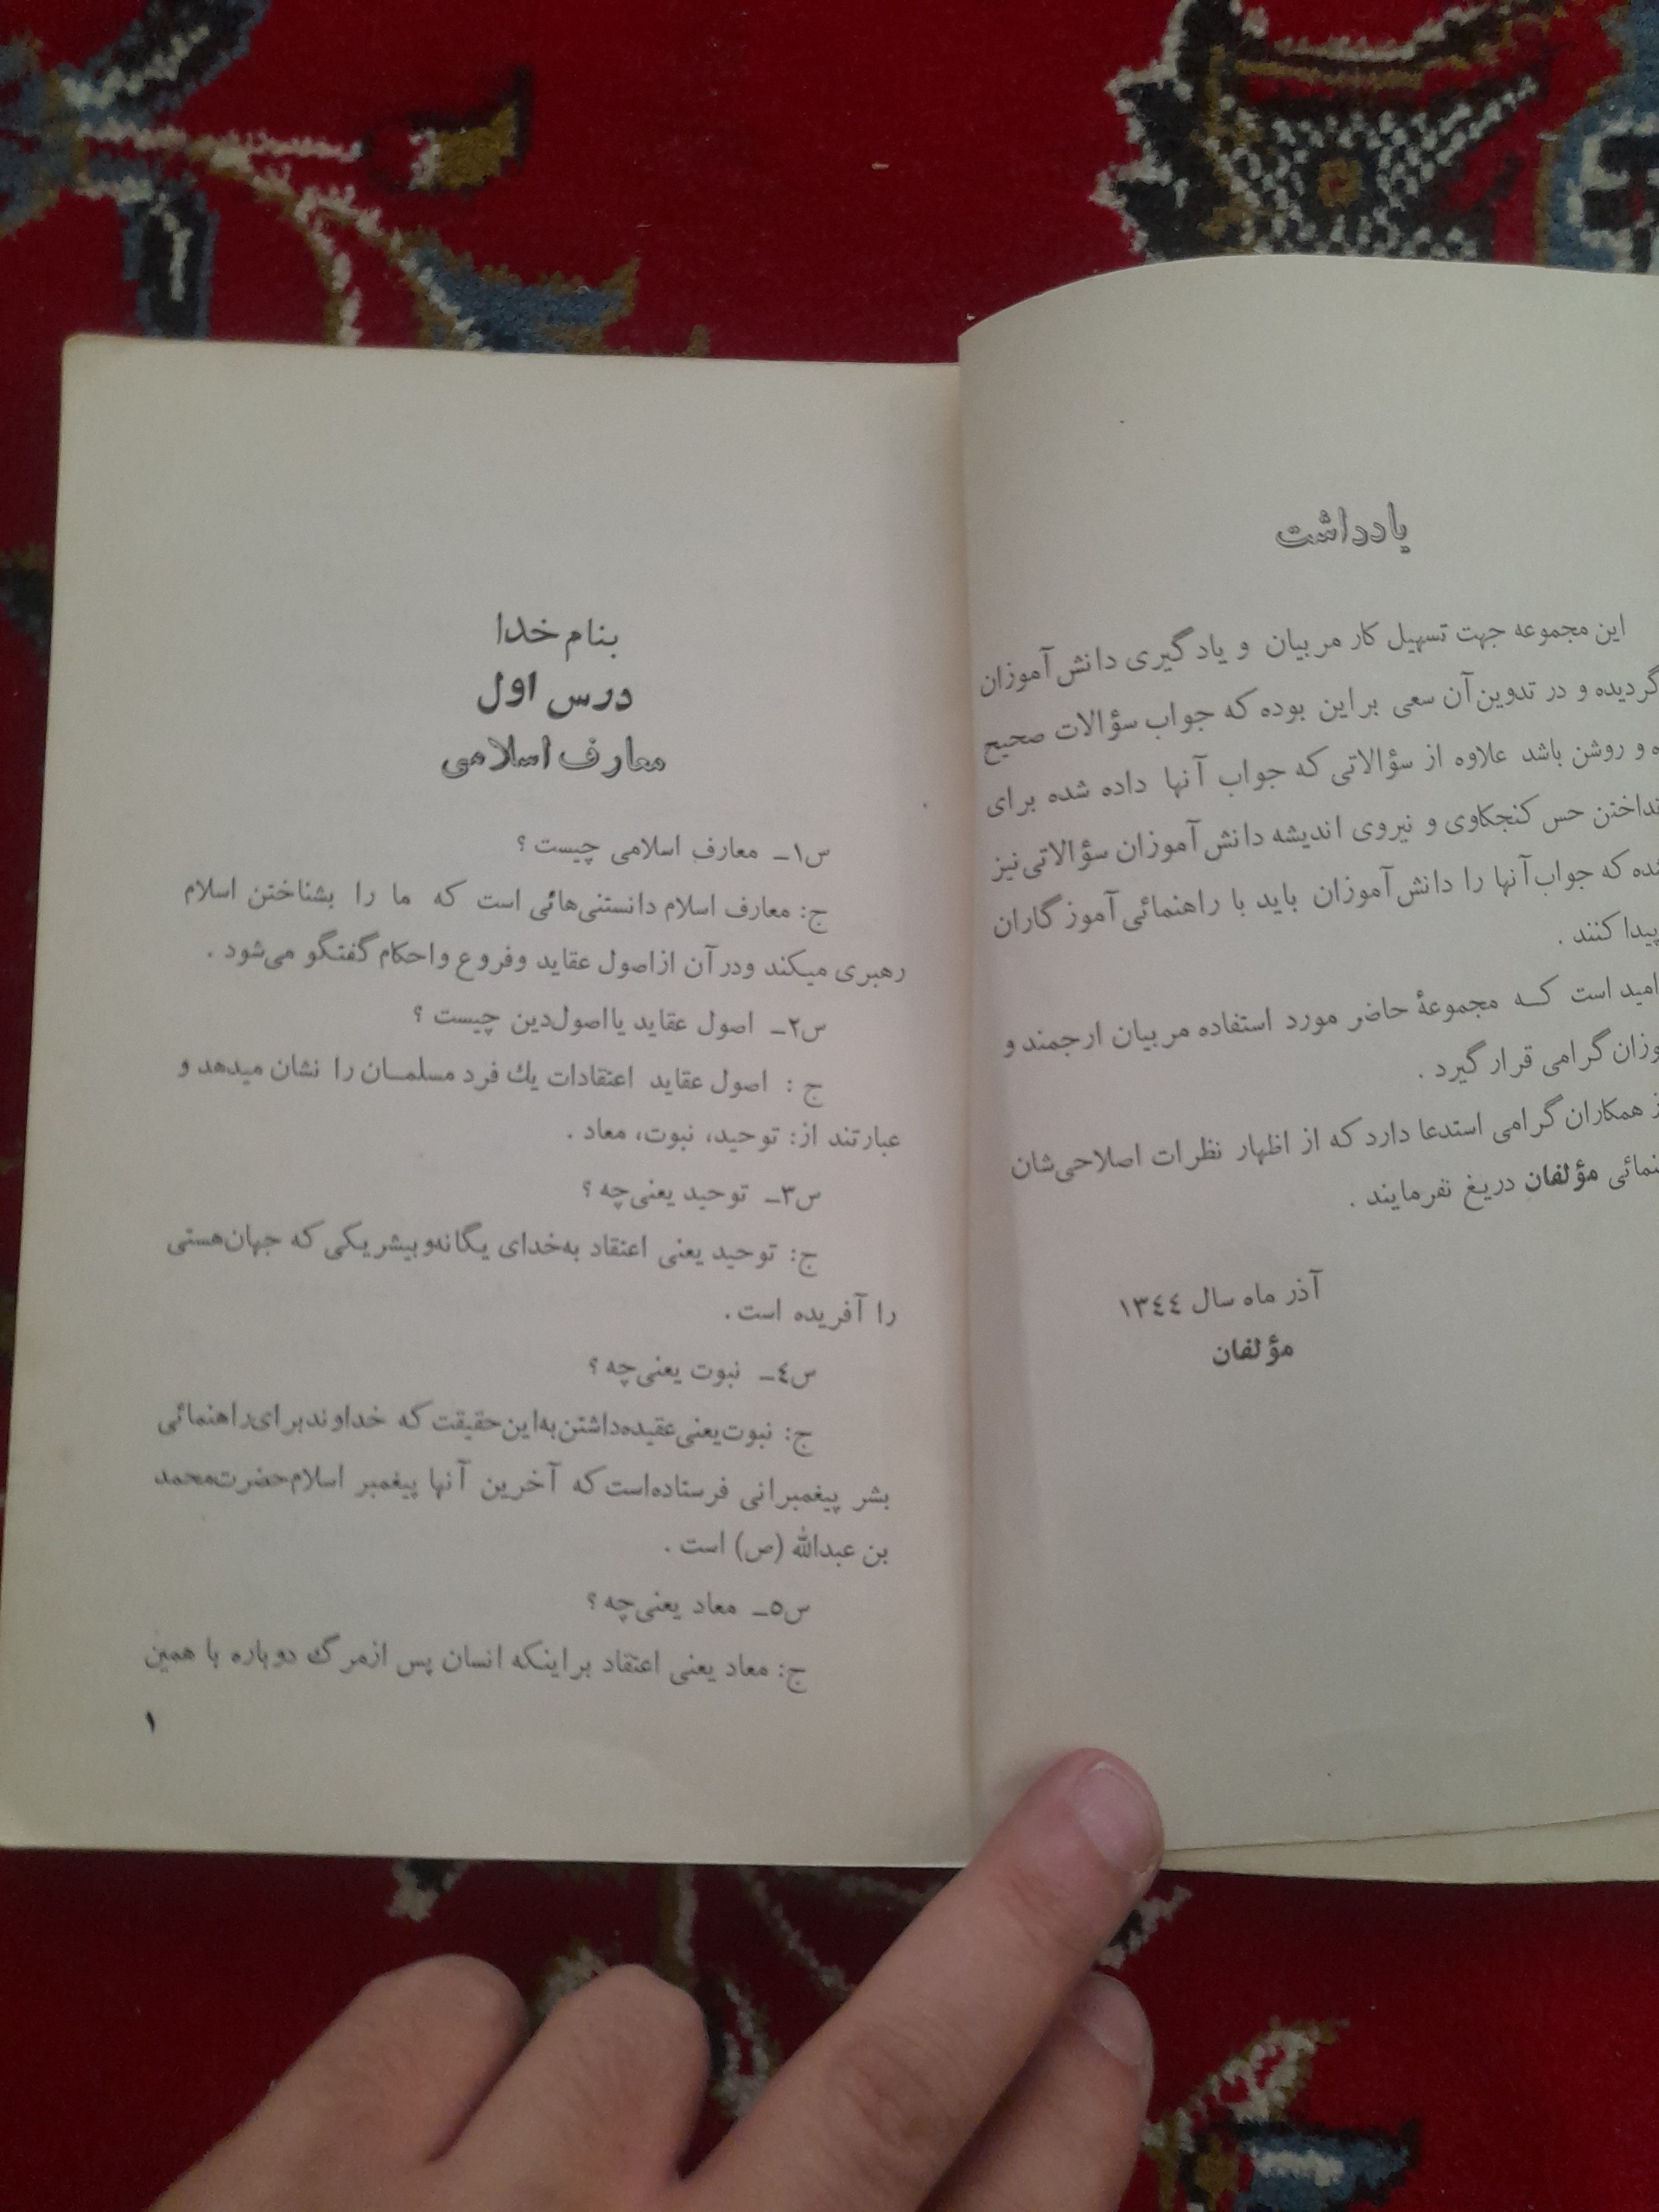 یادداشت
این مجموعه جهت تسهیل کار مربیان و یادگیری دانش‌آموزان
گردیده و در تدوین آن سعی براین بوده که جواب سؤالات صحیح
و روشن باشد علاوه از سؤالاتی که جواب آنها داده شده برای
حس کنجکاوی و نیروی اندیشه دانش‌آموزان سؤالاتی نیز
که جواب آنها را دانش‌آموزان باید با راهنمائی آموزگاران
پیدا کنند .
امید است که مجموعهٔ حاضر مورد استفاده مربیان ارجمند و
گرامی قرار گیرد .
همکاران گرامی استدعا دارد که از اظهار نظرات اصلاحی‌شان
مؤلفان دریغ نفرمایند .
آذر ماه سال ۱۳٤٤
مؤلفان
بنام خدا
درس اول
معارف اسلامی
س۱ـ معارف اسلامی چیست ؟
ج: معارف اسلام دانستنی‌هائی است که ما را بشناختن اسلام
رهبری میکند ودرآن ازاصول عقاید وفروع واحکام گفتگو می‌شود .
س۲ـ اصول عقاید یااصول‌دین چیست ؟
ج : اصول عقاید اعتقادات یك فرد مسلمان را نشان میدهد و
عبارتند از: توحید، نبوت، معاد .
س۳ـ توحید یعنی‌چه ؟
ج: توحید یعنی اعتقاد به‌خدای یگانه‌وبیشریکی که جهان‌هستی
را آفریده است .
س٤ـ نبوت یعنی‌چه ؟
ج: نبوت‌یعنی‌عقیده‌داشتن‌به‌این‌حقیقت که خداوندبرای‌راهنمائی
بشر پیغمبرانی فرستاده‌است که آخرین آنها پیغمبر اسلام‌حضرت‌محمد
بن عبدالله (ص) است .
س۵ـ معاد یعنی‌چه ؟
ج: معاد یعنی اعتقاد براینکه انسان پس ازمرگ دوباره با همین
۱